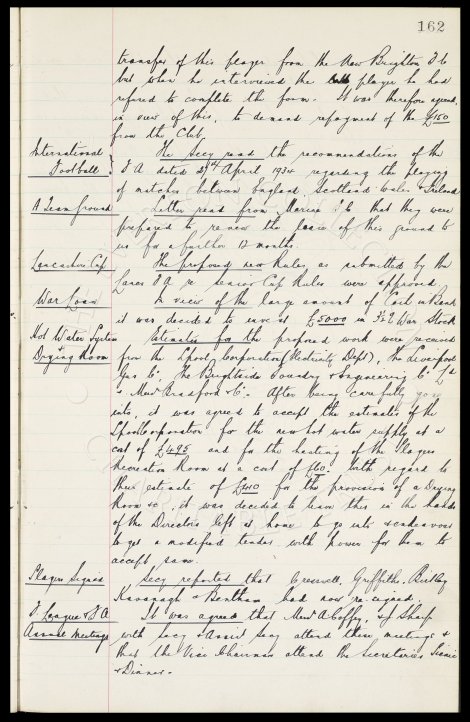 162
transfer of this player from the New Brighton F.C.
but when he interviewed the player he had
refused to complete the form. It was therefore agreed,
in view of this, to demand repayment of the £150
from the Club.
International Football } The Secy read the recommendations of the
F A dated 27th April 1934 regarding the playing
of matches between England Scotland Wales & Ireland
A Team Ground Letter read from Marine F.C. that they were
prepared to renew the lease of this ground to
us for a further 12 months.
Lancashire Cup The proposed new Rules as submitted by the
Lancs F.A. re Senior Cup Rules were approved.
War Loan In view of the large amount of Cash in Bank
it was decided to invest £5000 in 3½% War Stock
Hot Water System & Drying Room Estimates for the proposed work were received
from the Lpool Corporation (Electricity Dept), The Liverpool
Gas Co, The Brightside Foundry & Engineering Co Ld
& Messrs Bradford & Co. After being carefully gone
into, it was agreed to accept the estimates of the
Lpool Corporation for the new hot water supply at a
cost of £495 and for the heating of the Players
Recreation Room at a cost of £60. With regard to
their estimate of £440 for the provision of a Drying
Room &c, it was decided to leave this in the hands
of the Directors left at home to go into & endeavour
to get a modified tender, with power for them to
accept same.
Players Signed Secy reported that Cresswell, Griffiths,
Kavanagh & Bentham had now re-signed.
F. League & F A Annual Meetings It was agreed that Messrs A Coffey, & J Sharp
with Secy & Assist Secy attend these meetings &
that the Vice Chairman attend the Secretaries
& Dinner.